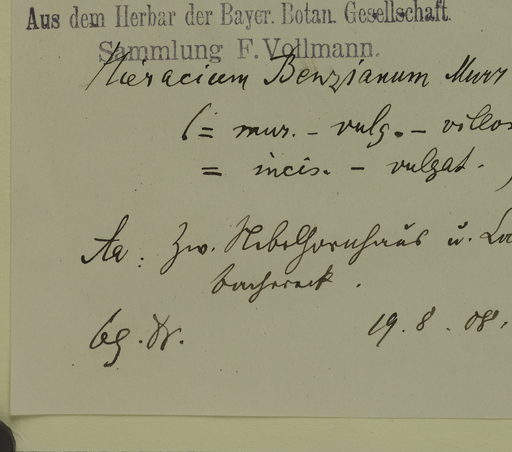 Aus dem Herbar der Bayer. Botan. Gesellschaft.
Sammlung F. Vollmann.
Hieracium Benzianum Murr
(= mur. - vulg. - villos
= incis. - vulgat. )
Aa: Zw. Nebelhornhaus u. La
bacherеck.
19. 8. 08.